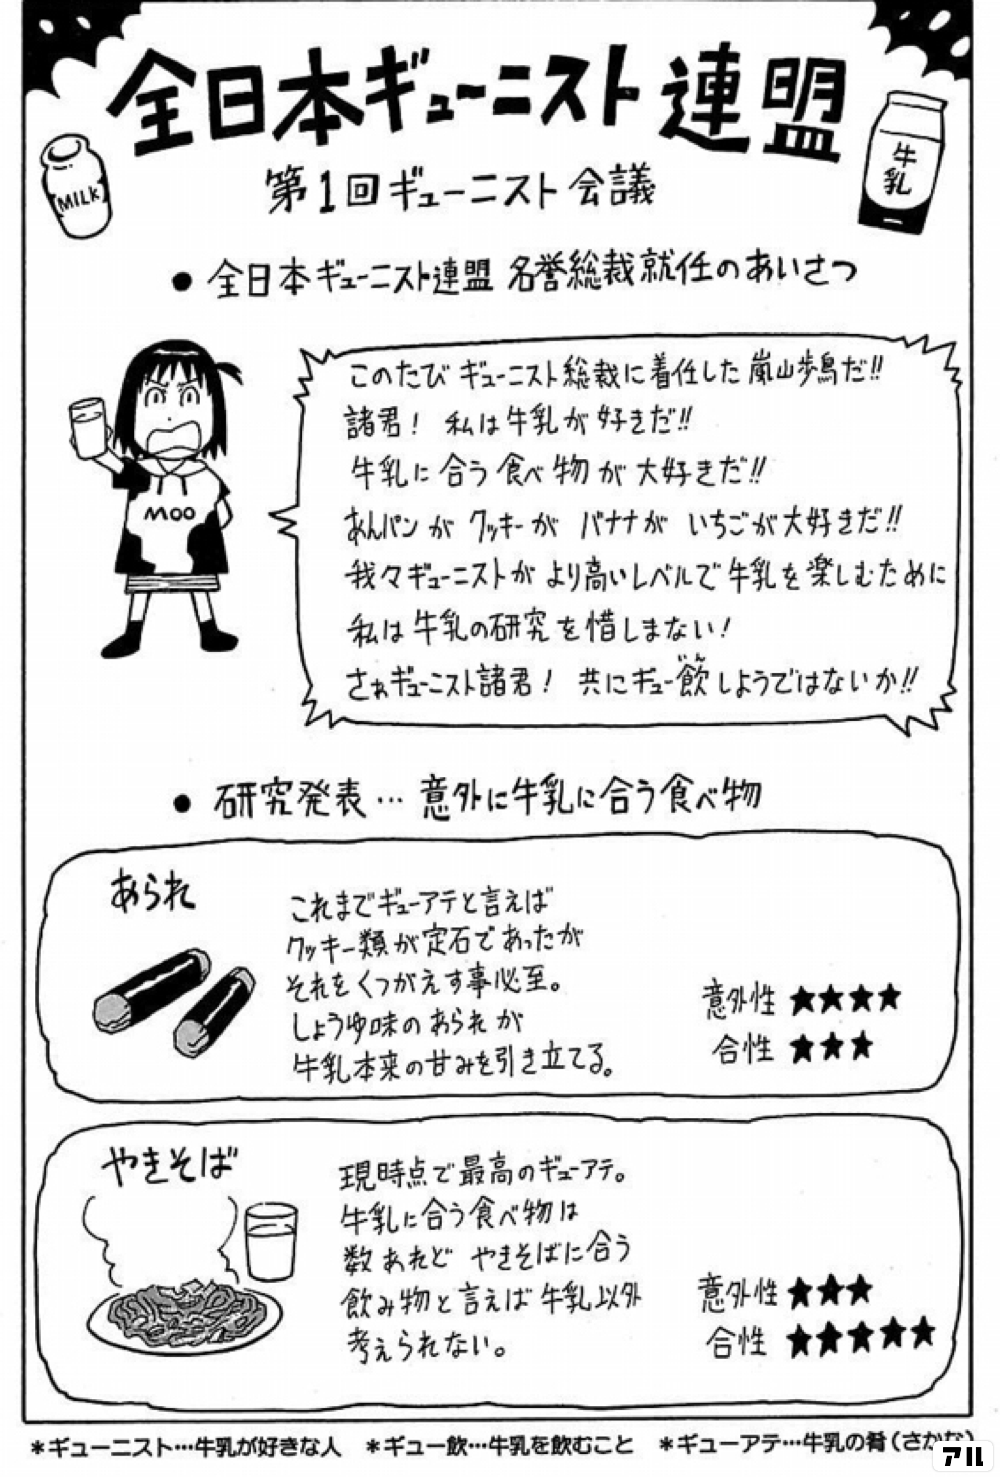 全日本ギューニスト連盟
MILK
牛乳
第1回ギューニスト会議
● 全日本ギューニスト連盟 名誉総裁就任のあいさつ
MOO
このたびギューニスト総裁に着任した嵐山歩鳥だ!!
諸君! 私は牛乳が好きだ!!
牛乳に合う食べ物が大好きだ!!
あんパンがクッキーがバナナがいちごが大好きだ!!
我々ギューニストがより高いレベルで牛乳を楽しむために
私は牛乳の研究を惜しまない!
いん
さぁギューニスト諸君! 共にギュー飲しようではないか!!
● 研究発表…意外に牛乳に合う食べ物
あられ
これまでギューアテと言えば
クッキー類が定石であったが
それをくつがえす事必至。
しょうゆ味のあられが
牛乳本来の甘みを引き立てる。
意外性 ★★★★
合性 ★★★
やきそば
現時点で最高のギューアテ。
牛乳に合う食べ物は
数あれどやきそばに合う
飲み物と言えば牛乳以外
考えられない。
意外性 ★★★
合性 ★★★★★
*ギューニスト…牛乳が好きな人 *ギュー飲…牛乳を飲むこと *ギューアテ…牛乳の肴(さかな)
アル